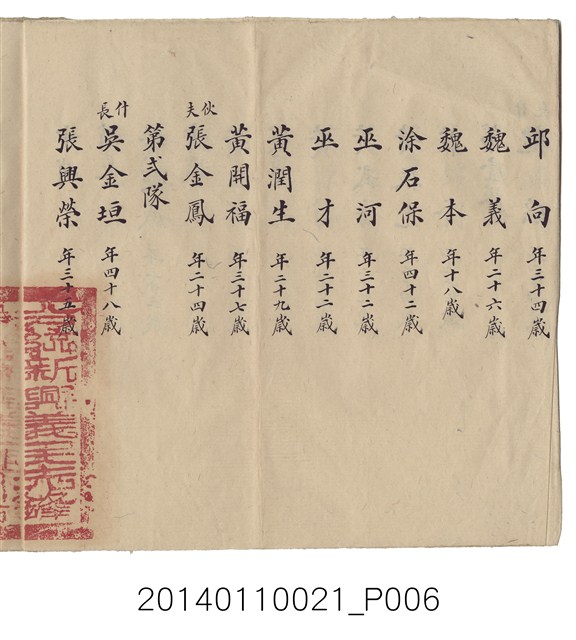 邱向 年三十四歲
魏義 年二十六歲
魏本 年十八歲
涂石保 年四十二歲
巫河 年三十二歲
巫才 年二十二歲
黃潤生 年二十九歲
黃開福 年三十七歲
伙夫 張金鳳 年二十四歲
第弍隊
什長 吳金垣 年四十八歲
張興榮 年三十五歲
20140110021_P006